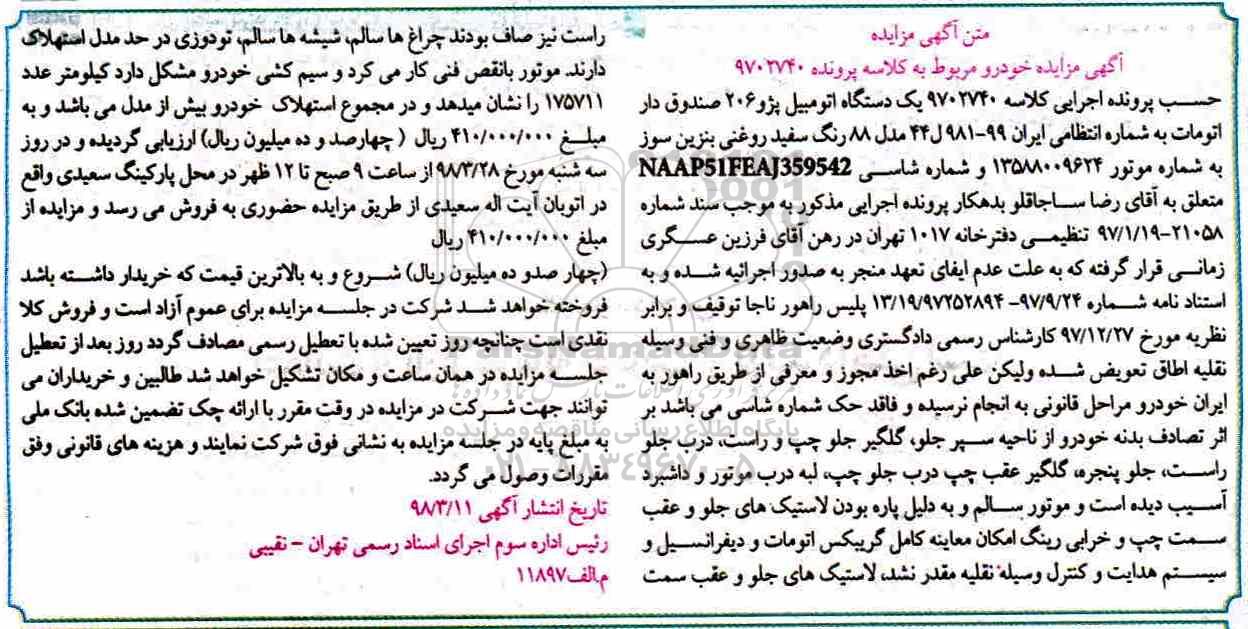 متن آگهی مزایده
آگهی مزایده خودرو مربوط به کلاسه پرونده ۹۷۰۲۷۴۰
حسب پرونده اجرایی کلاسه ۹۷۰۲۷۴۰ یک دستگاه اتومبیل پژو۲۰۶ صندوق دار
اتومات به شماره انتظامی ایران ۹۹-۹۸۱ل۴۴ مدل ۸۸ رنگ سفید روغنی بنزین سوز
به شماره موتور ۱۳۵۸۸۰۰۹۶۲۴ و شماره شاسی NAAP51FEAJ359542
متعلق به آقای رضا ساجاقلو بدهکار پرونده اجرایی مذکور به موجب سند شماره
۲۱۰۵۸-۹۷/۱/۱۹ تنظیمی دفترخانه ۱۰۱۷ تهران در رهن آقای فرزین عسگری
زمانی قرار گرفته که به علت عدم ایفای تعهد منجر به صدور اجرائیه شده و به
استناد نامه شماره ۹۷/۹/۲۴- ۱۳/۱۹/۹۷۲۵۲۸۹۴ پلیس راهور ناجا توقیف و برابر
نظریه مورخ ۹۷/۱۲/۲۷ کارشناس رسمی دادگستری وضعیت ظاهری و فنی وسیله
نقلیه اطاق تعویض شده ولیکن علی رغم اخذ مجوز و معرفی از طریق راهور به
ایران خودرو مراحل قانونی به انجام نرسیده و فاقد حک شماره شاسی می باشد بر
اثر تصادف بدنه خودرو از ناحیه سپر جلو، گلگیر جلو چپ و راست، درب جلو
راست، جلو پنجره، گلگیر عقب چپ درب جلو چپ، لبه درب موتور و داشبرد
آسیب دیده است و موتور سالم و به دلیل پاره بودن لاستیک های جلو و عقب
سمت چپ و خرابی رینگ امکان معاینه کامل گریبکس اتومات و دیفرانسیل و
سیستم هدایت و کنترل وسیله نقلیه مقدر نشد، لاستیک های جلو و عقب سمت
راست نیز صاف بودند چراغ ها سالم، شیشه ها سالم، تودوزی در حد مدل استهلاک
دارند. موتور بانقص فنی کار می کرد و سیم کشی خودرو مشکل دارد کیلومتر عدد
۱۷۵۷۱۱ را نشان میدهد و در مجموع استهلاک خودرو بیش از مدل می باشد و به
مبلغ ۴۱۰/۰۰۰/۰۰۰ ریال ( چهارصد و ده میلیون ریال) ارزیابی گردیده و در روز
سه شنبه مورخ ۹۸/۳/۲۸ از ساعت ۹ صبح تا ۱۲ ظهر در محل پارکینگ سعیدی واقع
در اتوبان آیت اله سعیدی از طریق مزایده حضوری به فروش می رسد و مزایده از
مبلغ ۴۱۰/۰۰۰/۰۰۰ ریال
(چهار صدو ده میلیون ریال) شروع و به بالاترین قیمت که خریدار داشته باشد
فروخته خواهد شد شرکت در جلسه مزایده برای عموم آزاد است و فروش کلا
نقدی است چنانچه روز تعیین شده با تعطیل رسمی مصادف گردد روز بعد از تعطیل
جلسه مزایده در همان ساعت و مکان تشکیل خواهد شد طالبین و خریداران می
توانند جهت شرکت در مزایده در وقت مقرر با ارائه چک تضمین شده بانک ملی
به مبلغ پایه در جلسه مزایده به نشانی فوق شرکت نمایند و هزینه های قانونی وفق
مقررات وصول می گردد.
تاریخ انتشار آگهی ۹۸/۳/۱۱
رئیس اداره سوم اجرای اسناد رسمی تهران - نقیبی
م.الف۱۱۸۹۷
ParsNamadData
پایگاه اطلاع رسانی مناقصه و مزایده
۰۲۱-۸۸۳۴۹۶۷۰-۵